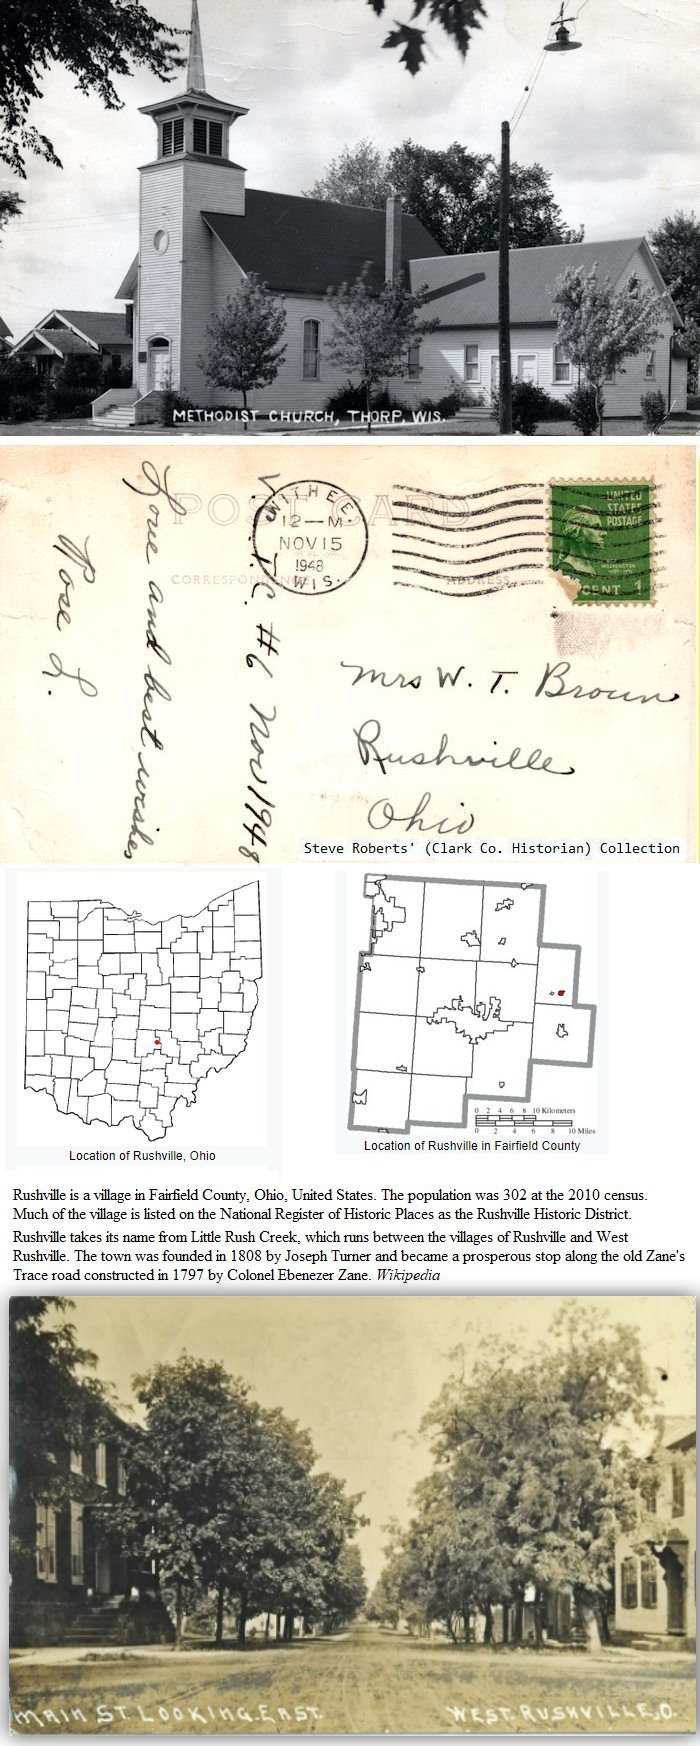 METHODIST CHURCH, THORP, WIS.
POST CARD
CORRESPONDENCE
ADDRESS
WITHEE
12—M
NOV 15
1948
WIS.
UNITED
STATES
POSTAGE
WASHINGTON
CENT 1
Love and best wishes
Rose L.
#6 Nov 1948
Mrs W. T. Broun
Rushville
Ohio
Steve Roberts' (Clark Co. Historian) Collection
0 2 4 6 8 10 Kilometers
0 2 4 6 8 10 Miles
Location of Rushville, Ohio
Location of Rushville in Fairfield County
Rushville is a village in Fairfield County, Ohio, United States. The population was 302 at the 2010 census.
Much of the village is listed on the National Register of Historic Places as the Rushville Historic District.
Rushville takes its name from Little Rush Creek, which runs between the villages of Rushville and West
Rushville. The town was founded in 1808 by Joseph Turner and became a prosperous stop along the old Zane's
Trace road constructed in 1797 by Colonel Ebenezer Zane. Wikipedia
MAIN ST. LOOKING. EAST.
WEST. RUSHVILLE, O.